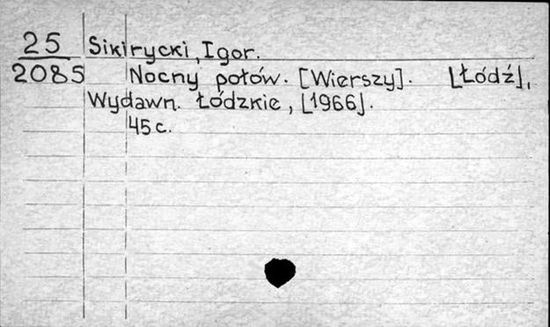 25 Sikirycki, Igor.
2085 Nocny połów. [Wierszy]. [Łódź],
Wydawn. Łódzkie, [1966].
45 c.